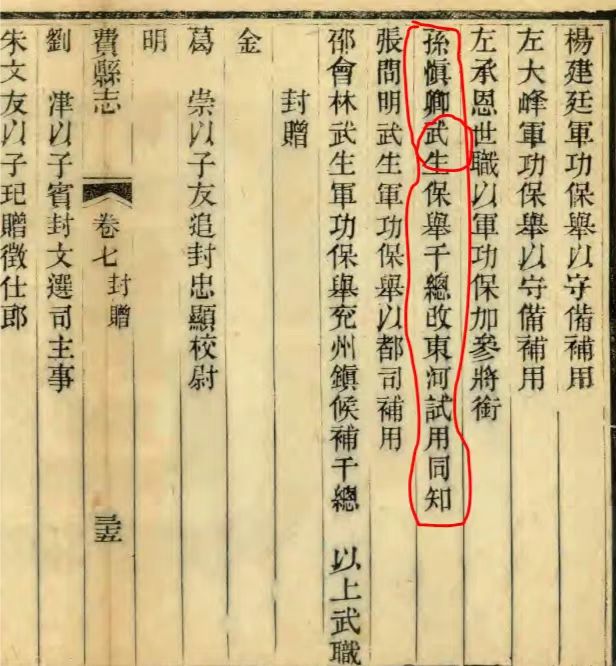 楊建廷軍功保舉以守備補用
左大峰軍功保舉以守備補用
左承恩世職以軍功保加參將銜
孫愼卿武生保舉千總改東河試用同知
張問明武生軍功保舉以都司補用
邵會林武生軍功保舉兖州鎮候補千總　以上武職
封贈
金
葛　崇以子友追封忠顯校尉
明
費縣志　卷七　封贈　三五
劉　津以子賓封文選司主事
朱文友以子玘贈徵仕郎